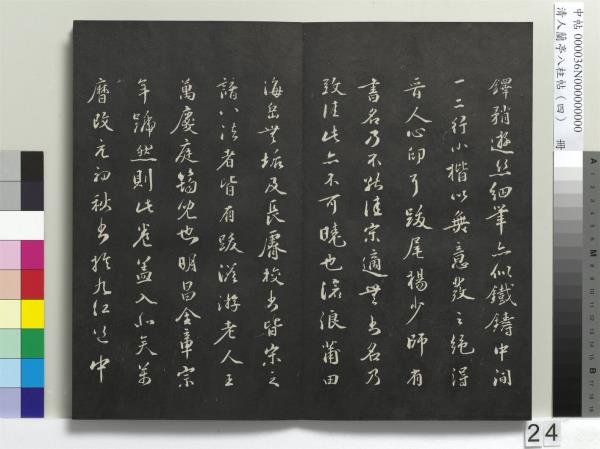 鐸稍遊絲細筆亦似鐵鑄中間
一二行小楷以無意發之絕得
晉人心印可跋尾楊少師有
書名乃不甚佳宋適無書名乃
致佳此亦不可曉也滄浪莆田
海岳無垢及長睿校書皆宋之
諳八法者皆有跋滋游老人王
萬慶庭筠兒也明昌金章宗
年號然則此卷蓋入於矣萬
曆改元初秋書於九江道中
中帖 000036N000000000
清人蘭亭八柱帖（四） 冊
24